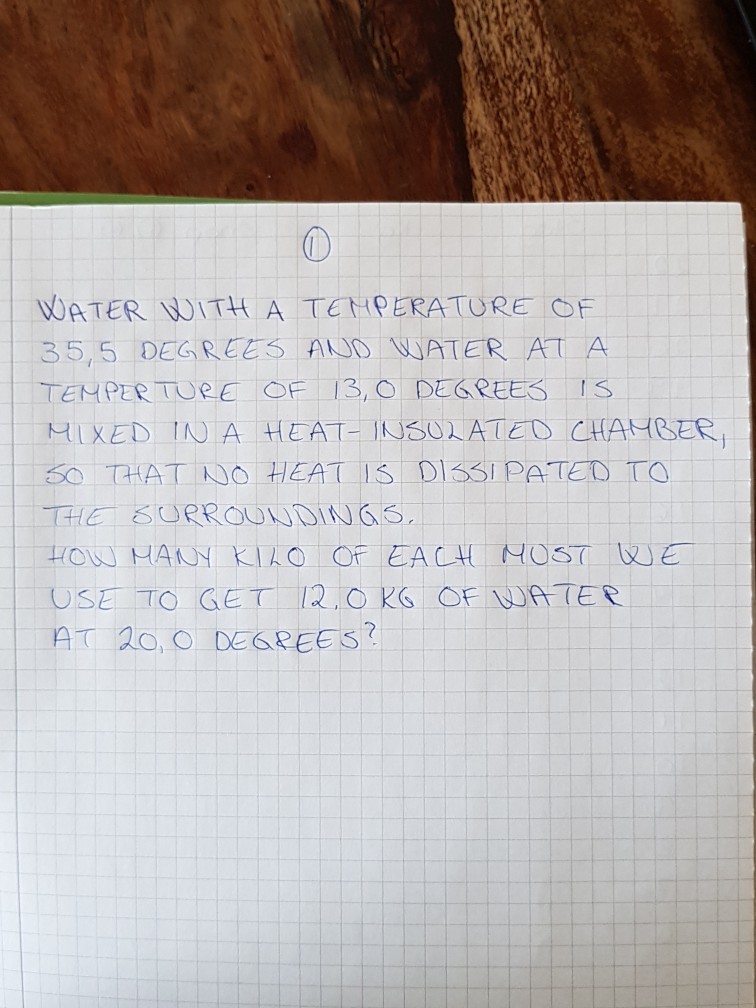 1
WATER WITH A TEMPERATURE OF
35,5 DEGREES AND WATER AT A
TEMPERTURE OF 13,0 DEGREES IS
MIXED IN A HEAT-INSULATED CHAMBER,
SO THAT NO HEAT IS DISSIPATED TO
THE SURROUNDINGS.
HOW MANY KILO OF EACH MUST WE
USE TO GET 12,0 KG OF WATER
AT 20,0 DEGREES?